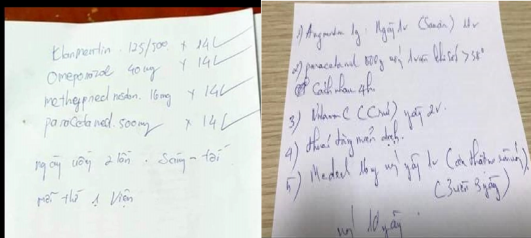 Klamentin . 125/500 x 14
Omeprazol 40mg x 14
methylpred nisolon. 16mg x 14
paracetamol. 500mg x 14
ngày uống 2 lần . Sáng - tối
mỗi thứ 1 viên
1) Augmentin 1g. Ngày 2v
2) paracetamol 500g uống 1 viên khi sốt > 38°
Cách nhau 4h
3) Vitamin C ngày 2v.
4) thuốc tăng miễn dịch.
5) Medrol 16g uống ngày 1v
(3 viên 3 ngày)
uống 10 ngày.